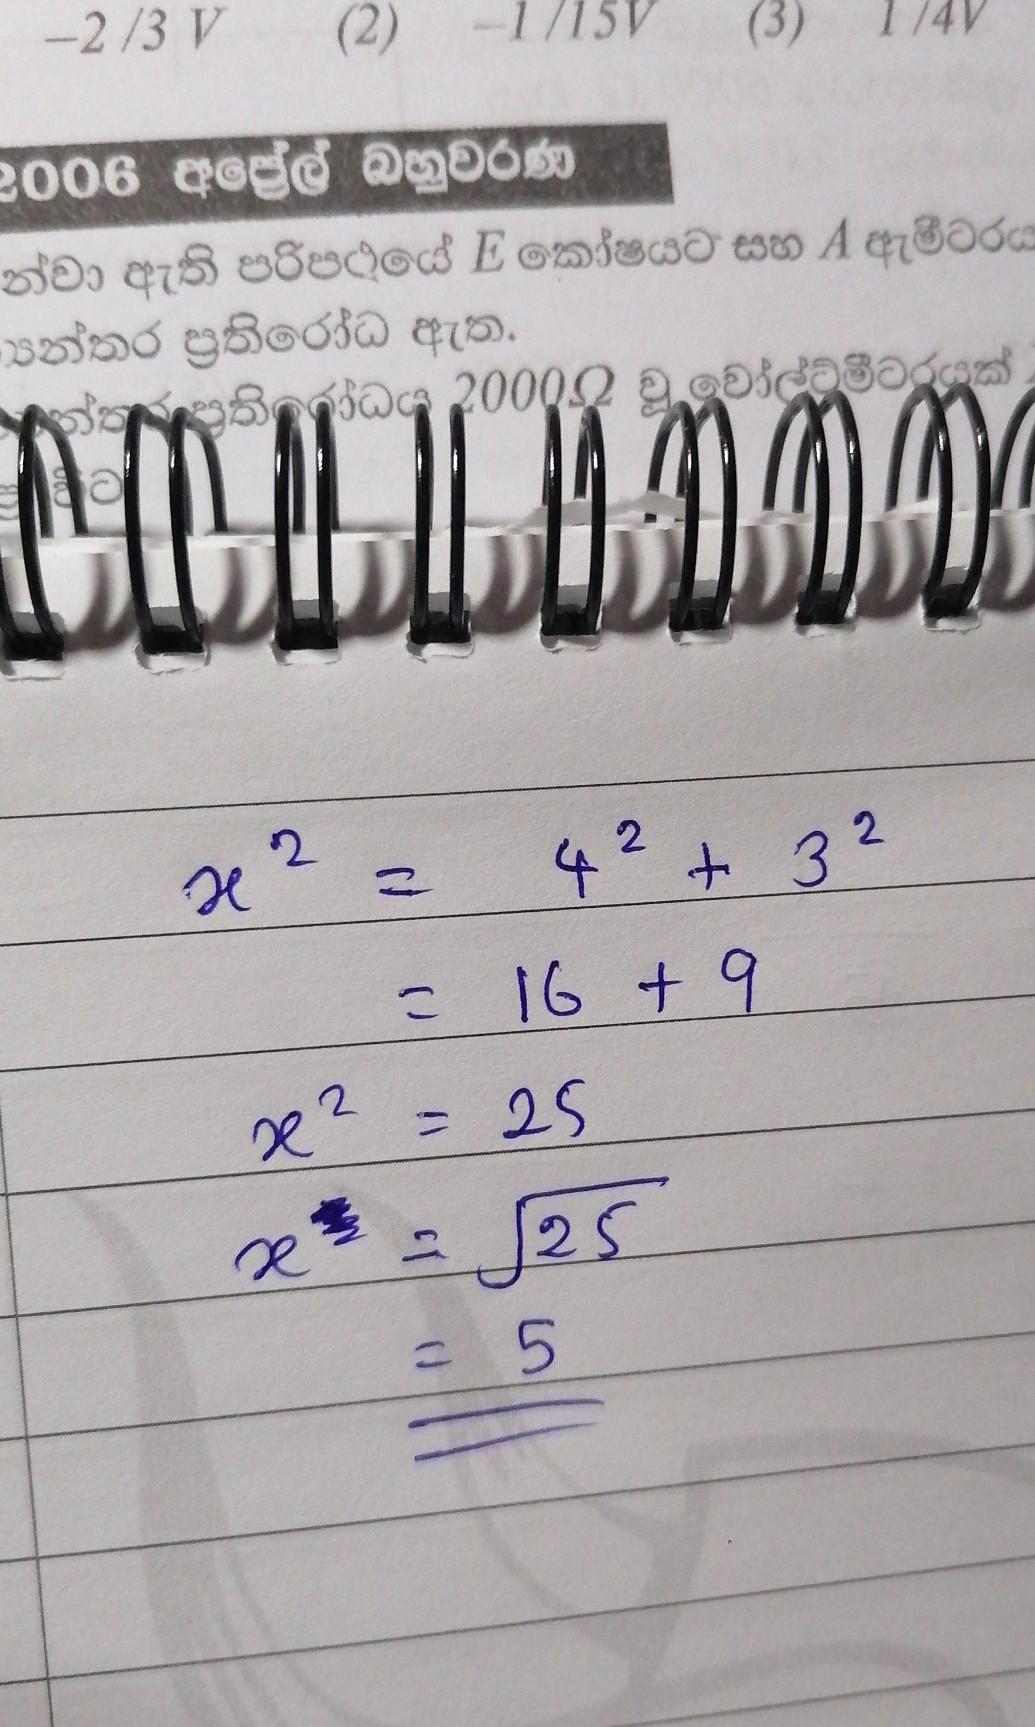 -2/3 V (2) -1/15V (3) 1/4V
2006 අප්‍රේල් බහුවරණ
න්වා ඇති පරිපථයේ E කෝෂයට සහ A ඇමීටරය
්‍යන්තර ප්‍රතිරෝධ ඇත.
ප්‍රතිරෝධය 2000Ω වූ වෝල්ට්මීටරයක්
විට
x² = 4² + 3²
= 16 + 9
x² = 25
x = √25
= 5